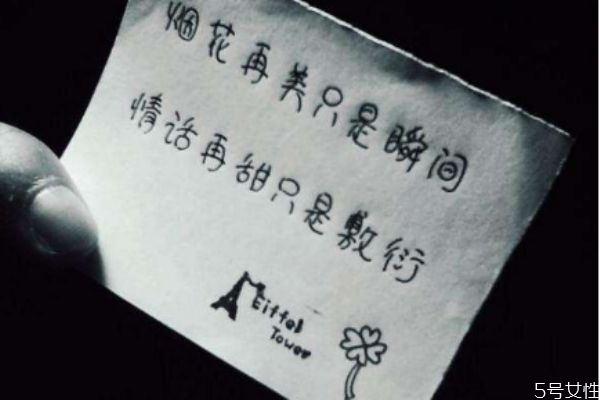 烟花再美只是瞬间
情话再甜只是敷衍
Eiffel
Tower
5号女性